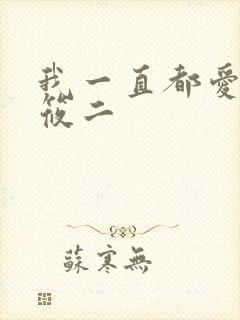 我一直都愛
筱二
蘇寒無